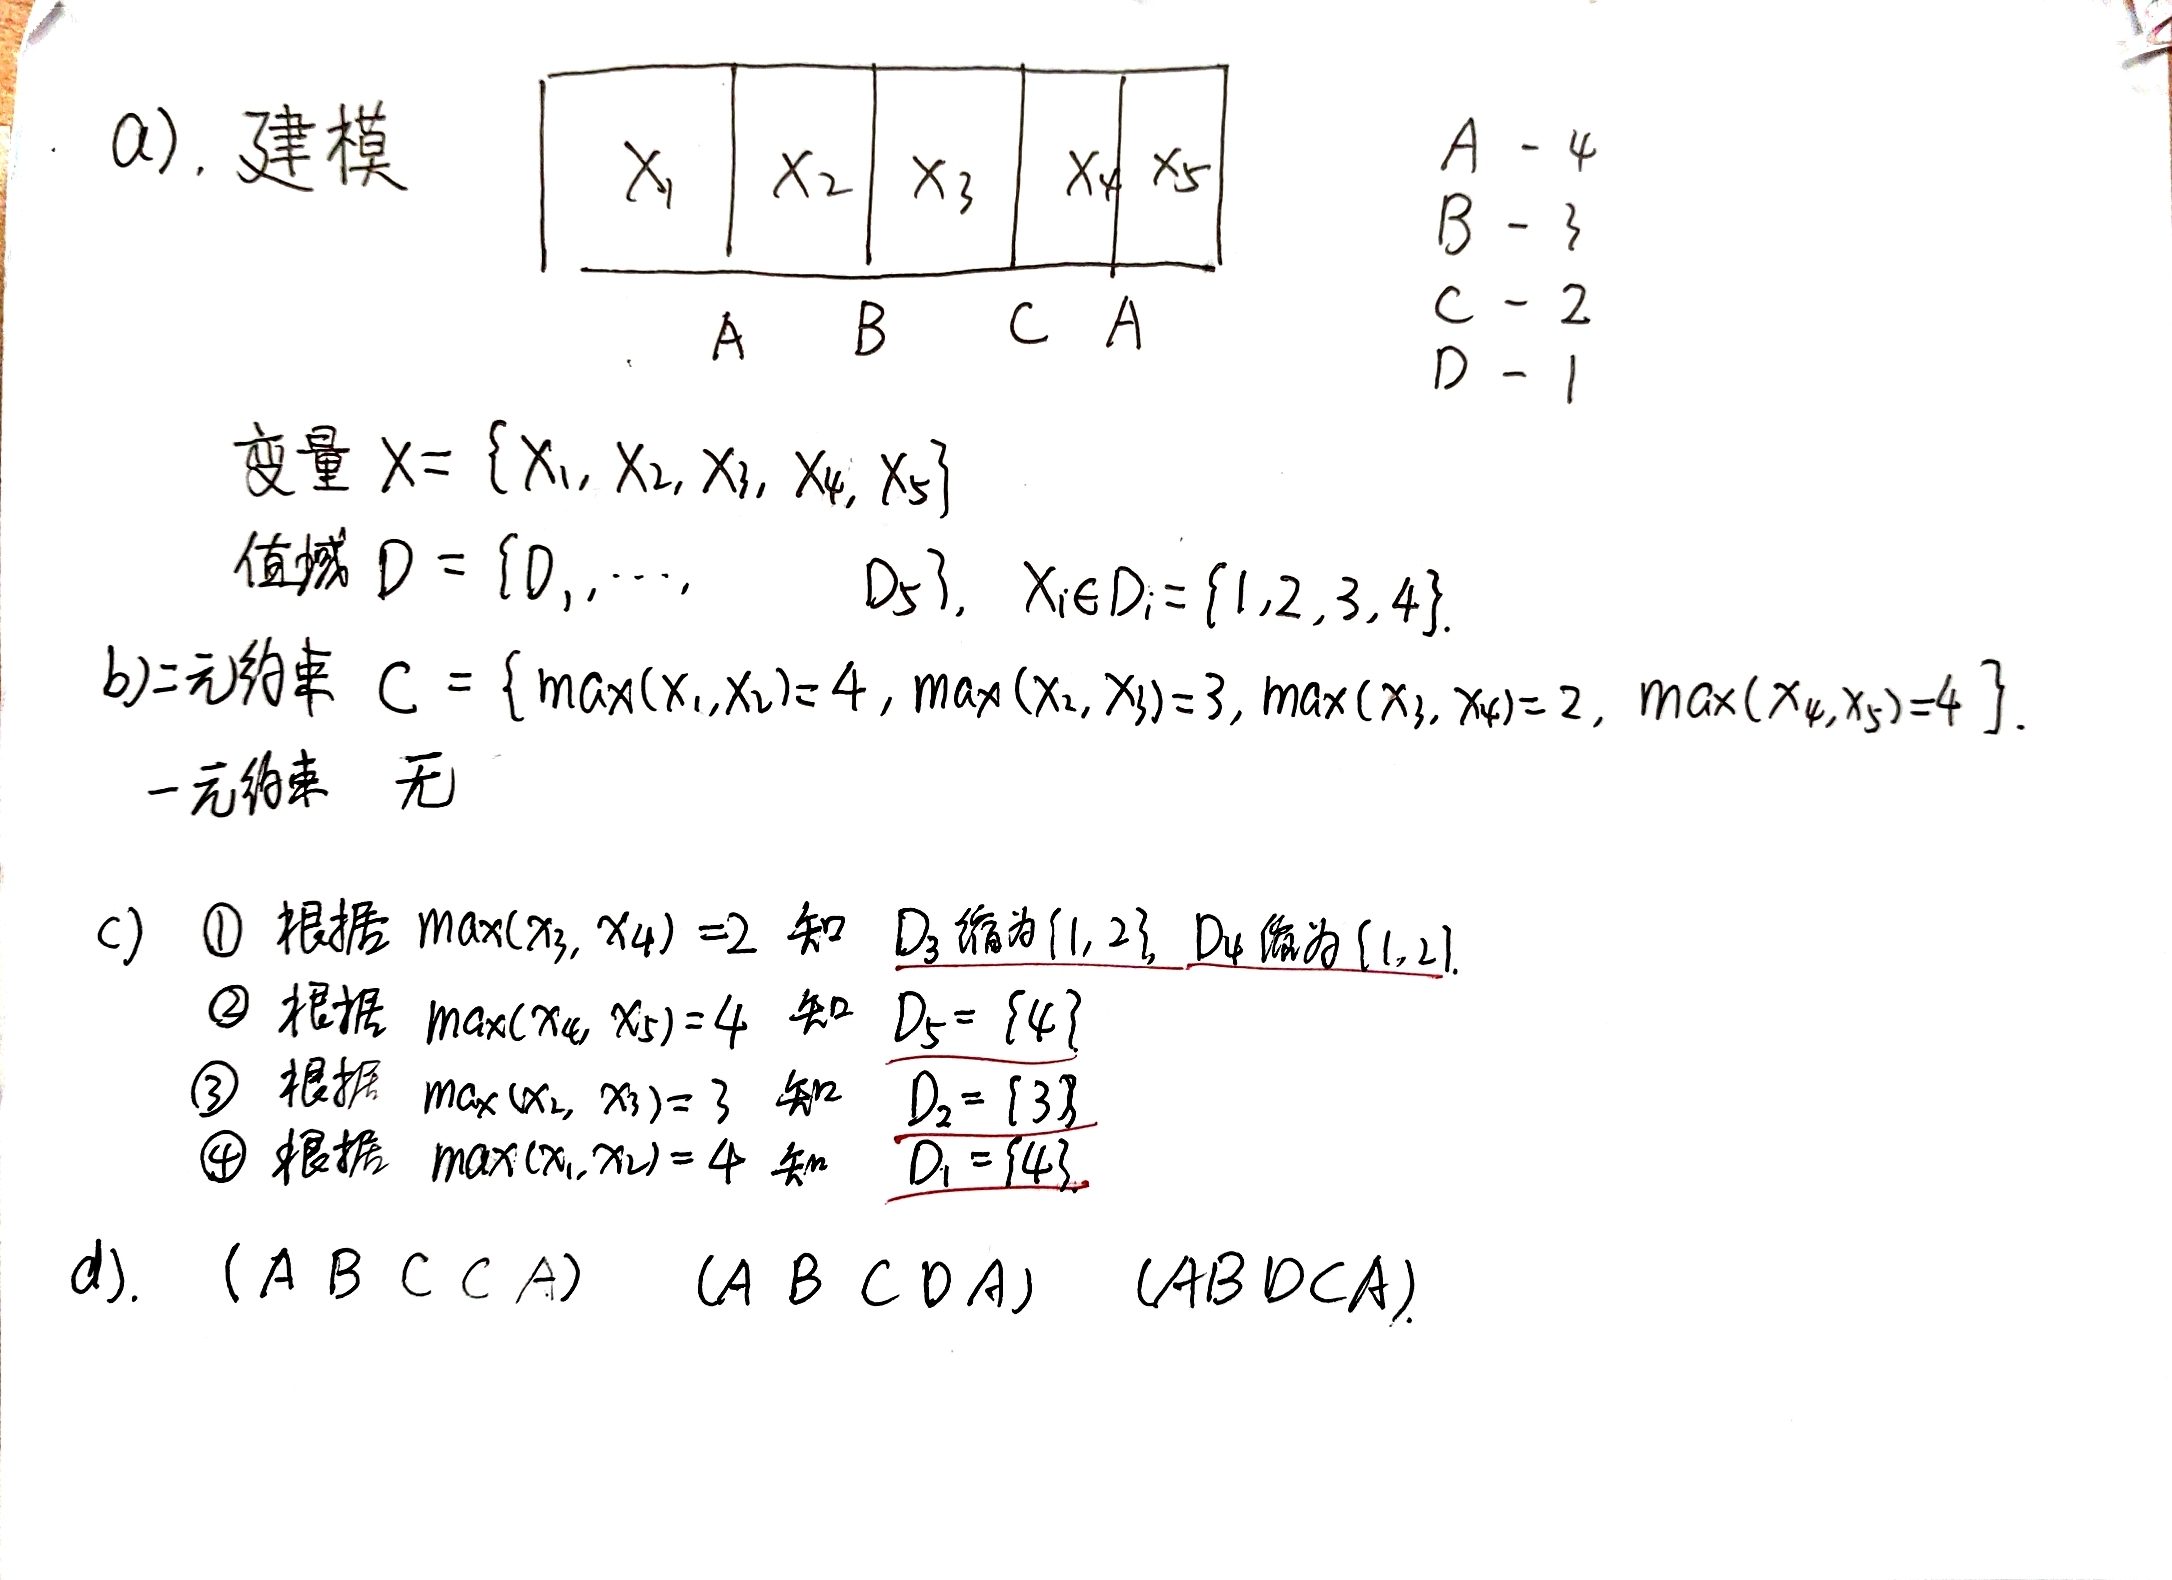 a). 建模
X1 X2 X3 X4 X5
A B C A
A - 4
B - 3
C - 2
D - 1
变量 X = {X1, X2, X3, X4, X5}
值域 D = {D1, ..., D5}, Xi∈Di = {1,2,3,4}.
b) 二元约束 C = {max(x1,x2)=4, max(x2,x3)=3, max(x3,x4)=2, max(x4,x5)=4}.
一元约束 无
c) ① 根据 max(x3,x4)=2 知 D3缩为{1,2}, D4缩为{1,2}.
② 根据 max(x4,x5)=4 知 D5={4}
③ 根据 max(x2,x3)=3 知 D2={3}
④ 根据 max(x1,x2)=4 知 D1={4}.
d). (A B C C A) (A B C D A) (A B D C A).